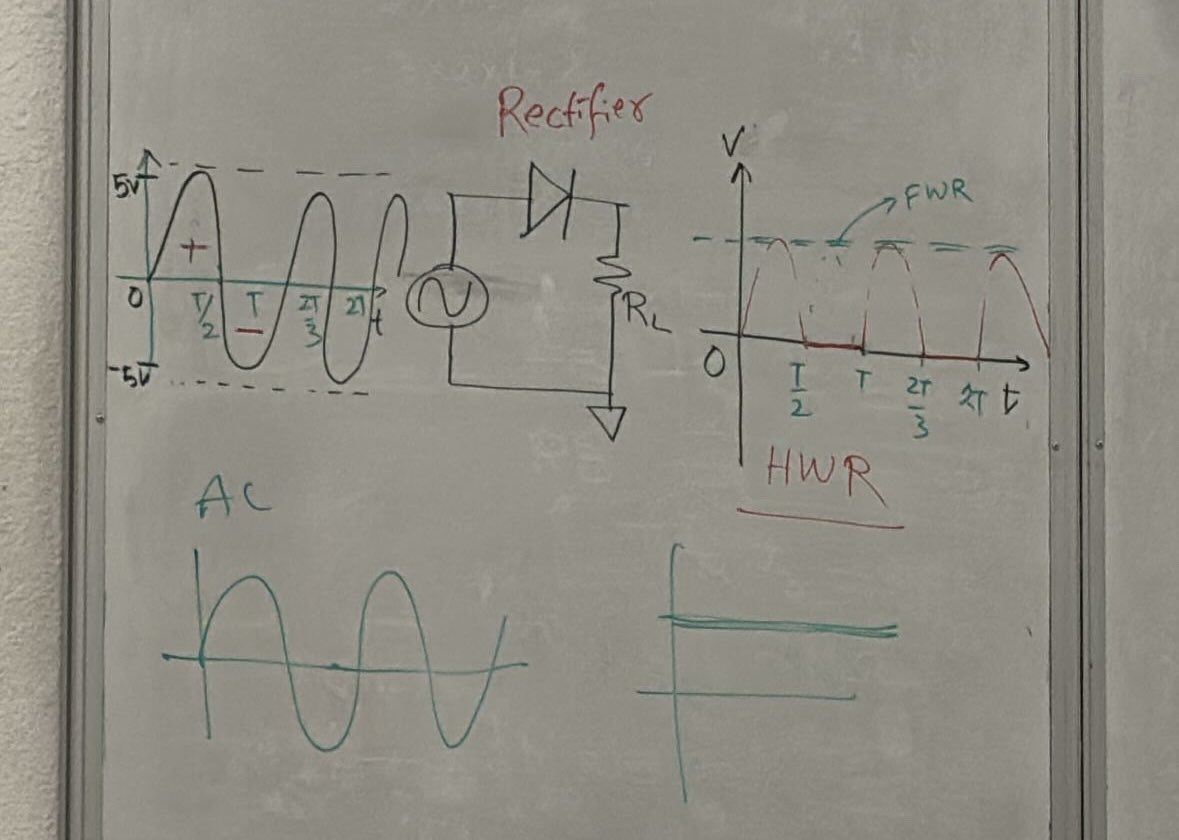 Rectifier
V
5V
FWR
+
0
T/2
T
2T/3
2T
t
-
-5V
RL
0
T/2
T
2T/3
2T
t
HWR
AC